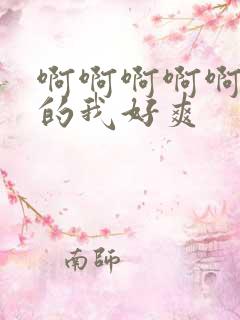 啊啊啊啊啊
的我好爽
南師